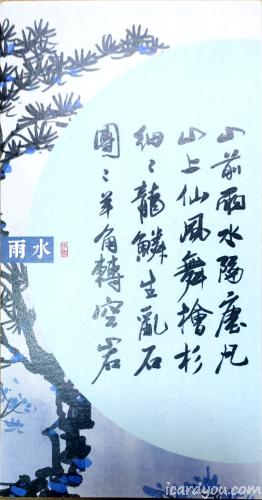 山前雨水隔塵凡
山上仙風舞檜杉
細〻龍鱗生亂石
團〻羊角轉空岩
雨水
icardyou.com